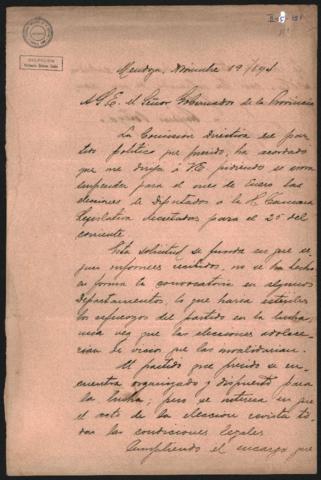 Mendoza, Noviembre 19/194
A S. E. el Señor Gobernador de la Provincia
La Comision directiva del par
tido politico que presido, ha acordado
que me dirija á V.E. pidiendo se sirva
suspender para el mes de Enero las
elecciones de Diputados a la H. Camara
Legislativa decretadas para el 25 del
corriente
Esta solicitud se funda en que se-
gun informes recibidos, no se ha hecho
en forma la convocatoria en algunos
Departamentos, lo que haria esteriles
los esfuerzos del partido en la lucha,
una vez que las elecciones adolece-
rian de vicios que las invalidarian.
El partido que presido se en-
cuentra organizado y dispuesto para
la lucha; pero se interesa en que
el acto de la eleccion revista to-
das las condiciones legales
Cumpliendo el encargo que